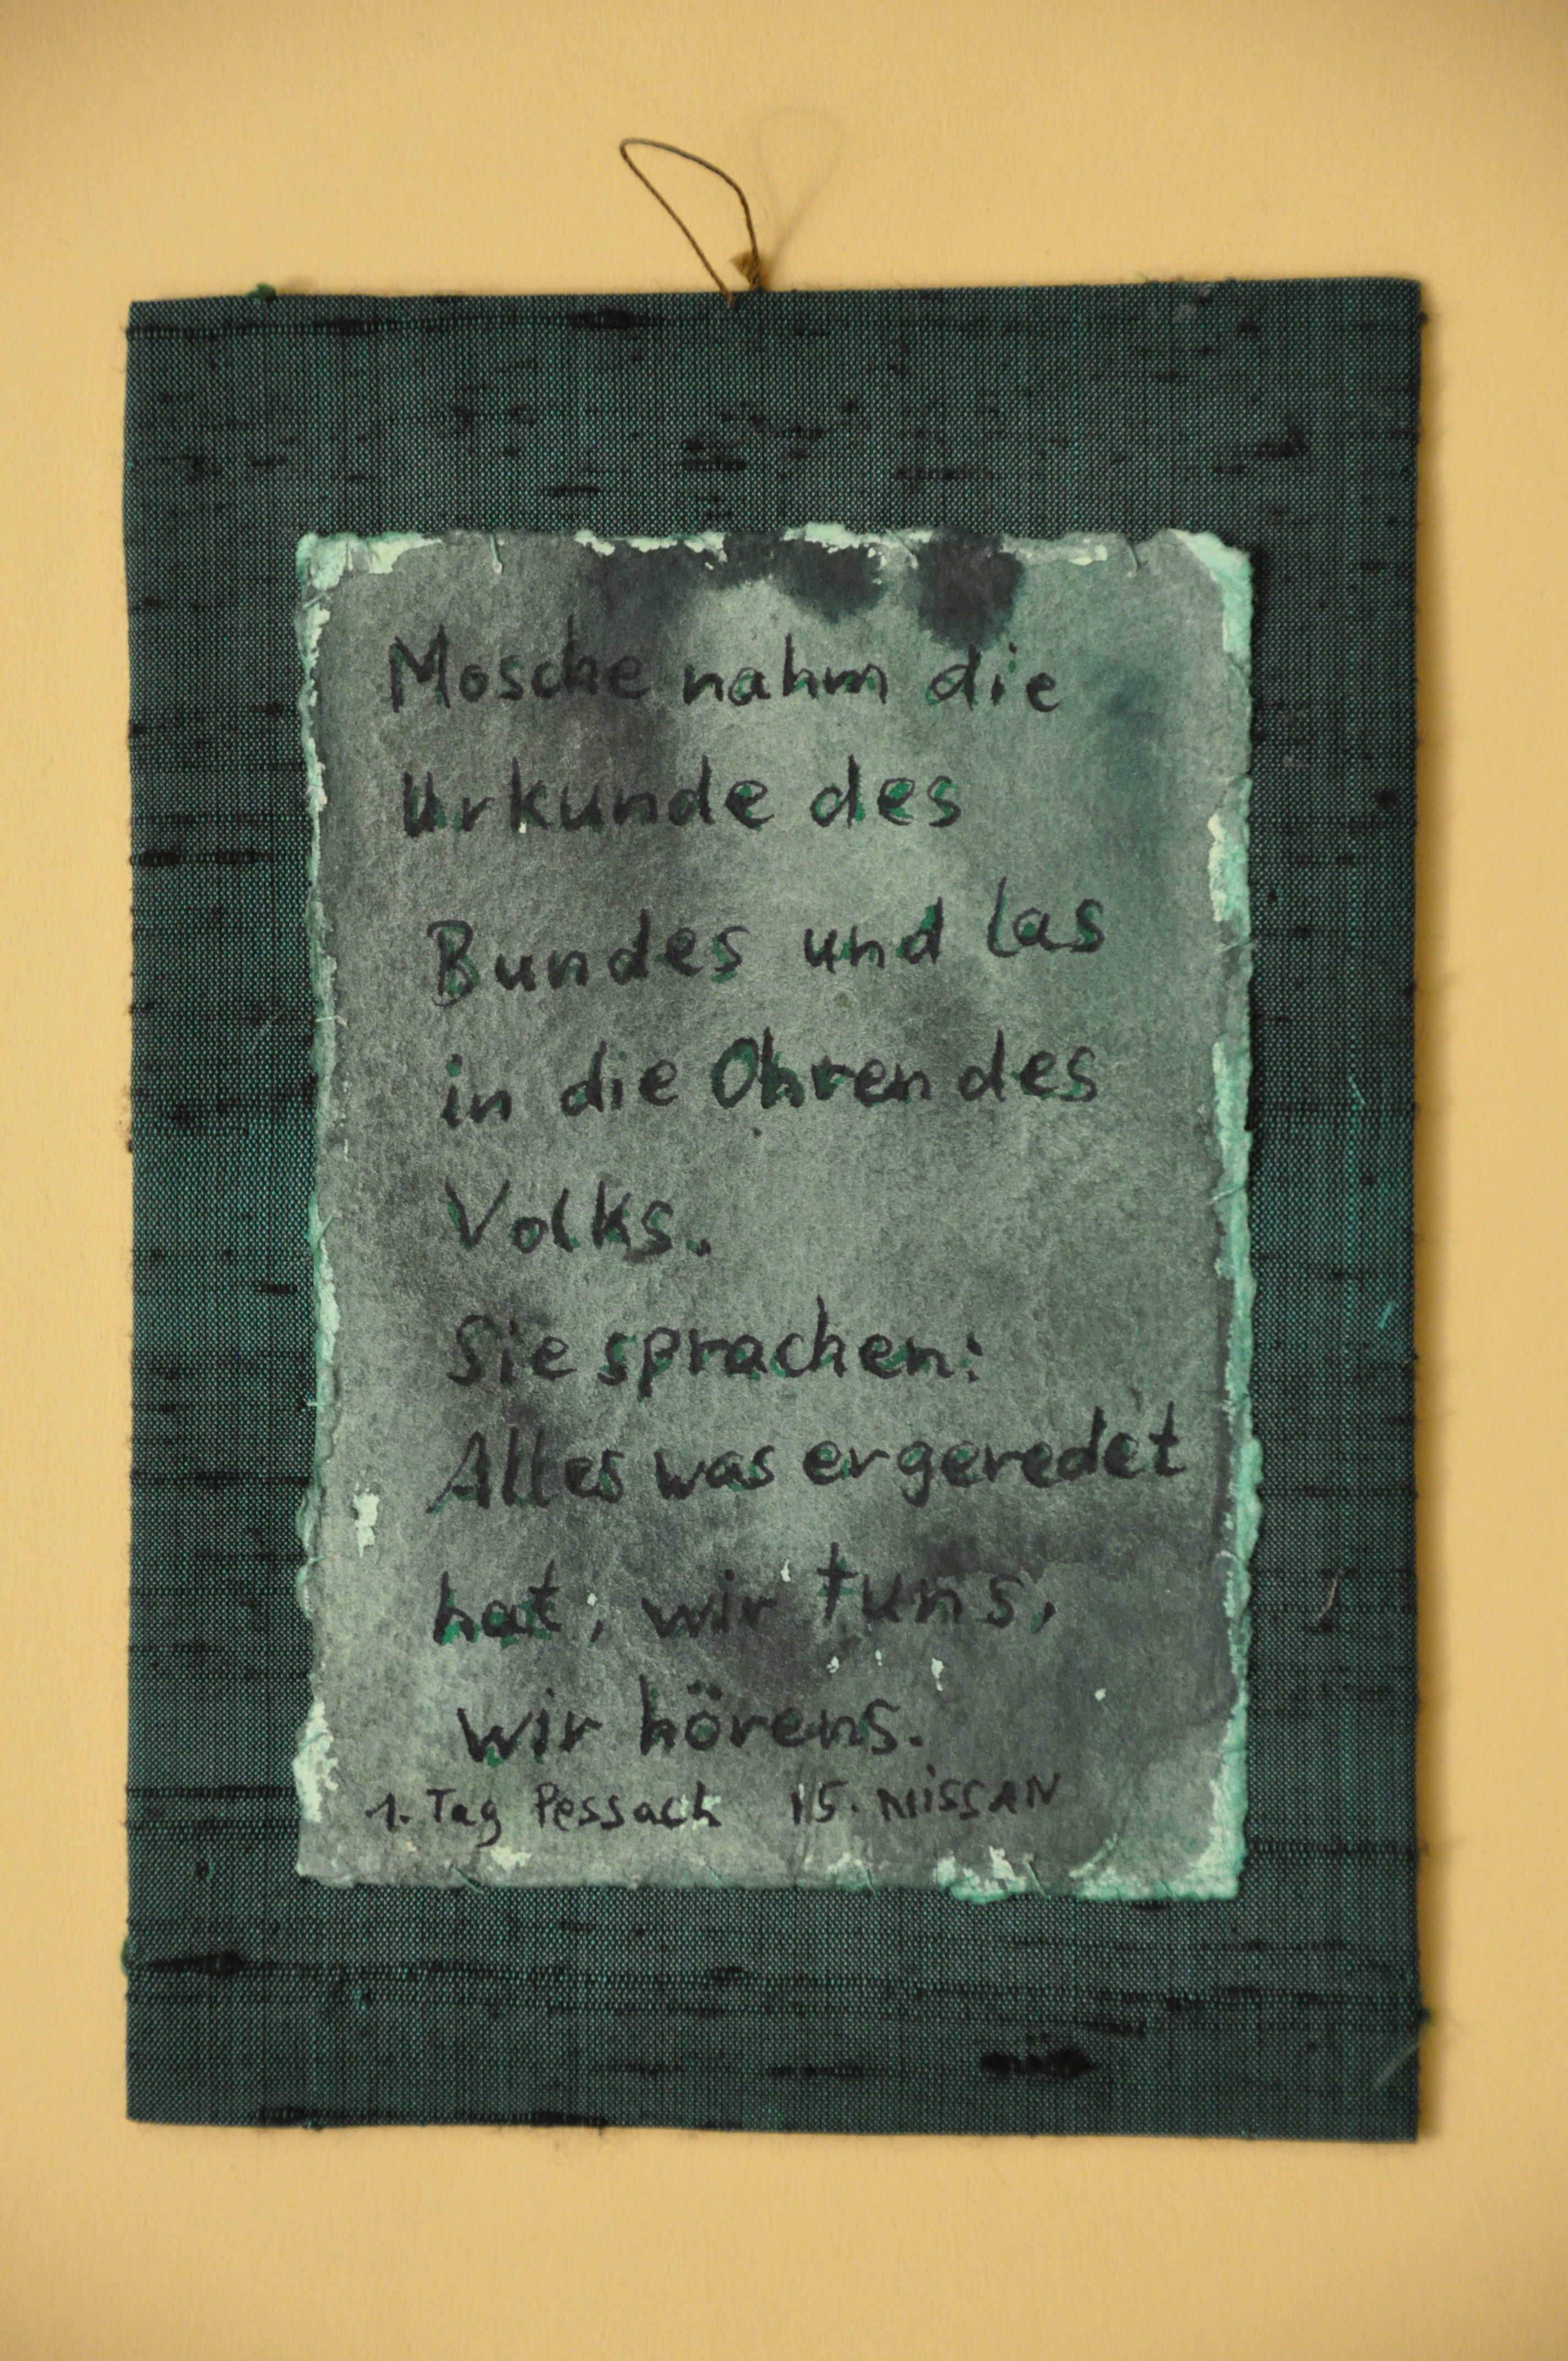 Mosche nahm die
Urkunde des
Bundes und las
in die Ohren des
Volks.
Sie sprachen:
Alles was er geredet
hat, wir tuns,
wir hörens.
1. Tag Pessach 15. NISSAN